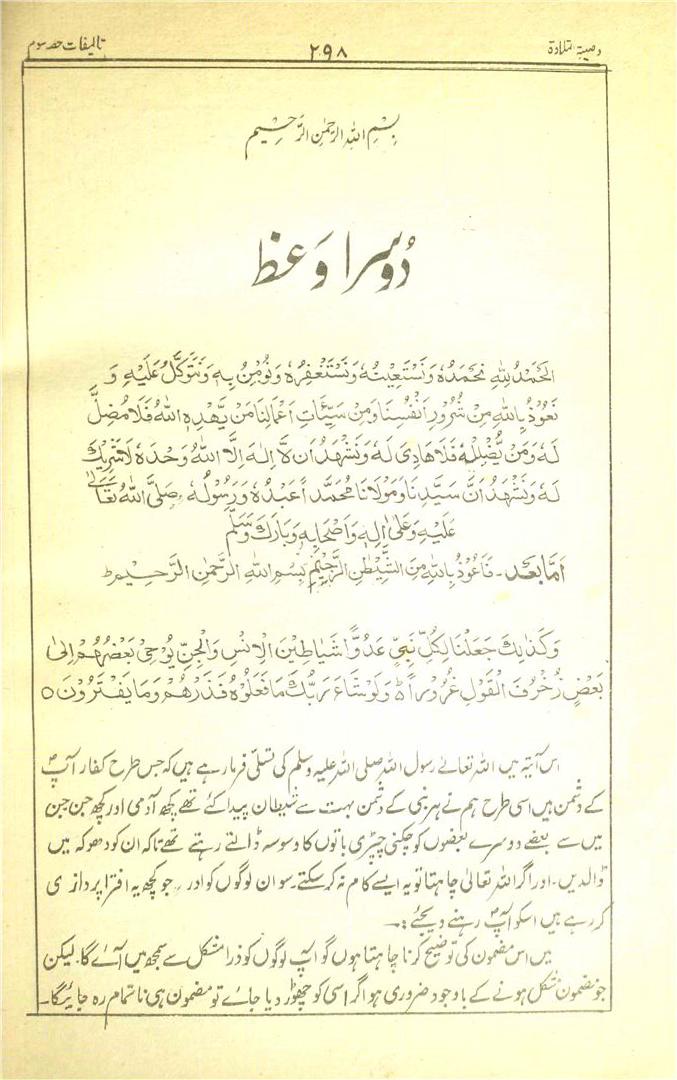 وصیۃ تلاوۃ ۲۹۸ تالیفات حصہ سوم
بِسْمِ اللهِ الرَّحْمٰنِ الرَّحِیْمِ
دُوسرا وَعظ
اَلْحَمْدُ لِلّٰهِ نَحْمَدُهٗ وَنَسْتَعِیْنُهٗ وَنَسْتَغْفِرُهٗ وَنُؤْمِنُ بِهٖ وَنَتَوَکَّلُ عَلَیْهِ وَ
نَعُوْذُ بِاللهِ مِنْ شُرُوْرِ اَنْفُسِنَا وَمِنْ سَیِّئَاتِ اَعْمَالِنَا مَنْ یَّهْدِهِ اللهُ فَلَا مُضِلَّ
لَهٗ وَمَنْ یُّضْلِلْهُ فَلَا هَادِیَ لَهٗ وَنَشْهَدُ اَنْ لَّا اِلٰهَ اِلَّا اللهُ وَحْدَهٗ لَا شَرِیْكَ
لَهٗ وَنَشْهَدُ اَنَّ سَیِّدَنَا وَمَوْلَانَا مُحَمَّدًا عَبْدُهٗ وَرَسُوْلُهٗ صَلَّی اللهُ تَعَالٰی
عَلَیْهِ وَعَلٰی اٰلِهٖ وَاَصْحَابِهٖ وَبَارَكَ وَسَلَّمَ
اَمَّا بَعْد۔ فَاَعُوْذُ بِاللهِ مِنَ الشَّیْطٰنِ الرَّجِیْمِ بِسْمِ اللهِ الرَّحْمٰنِ الرَّحِیْمِ ط
وَکَذٰلِكَ جَعَلْنَا لِکُلِّ نَبِیٍّ عَدُوًّا شَیَاطِیْنَ الْاِنْسِ وَالْجِنِّ یُوْحِیْ بَعْضُهُمْ اِلٰی
بَعْضٍ زُخْرُفَ الْقَوْلِ غُرُوْرًا ط وَلَوْ شَاءَ رَبُّكَ مَا فَعَلُوْهُ فَذَرْهُمْ وَمَا یَفْتَرُوْنَ ○
اس آیۃ میں اللہ تعالےٰ رسول اللہ صلی اللہ علیہ وسلم کی تسلّی فرما رہے ہیں کہ جس طرح کفار آپؐ
کے دشمن ہیں اسی طرح ہم نے ہر نبی کے دشمن بہت سے شیطان پیدا کئے تھے کچھ آدمی اور کچھ جن جن
میں سے بعضے دوسرے بعضوں کو چکنی چپڑی باتوں کا وسوسہ ڈالتے رہتے تھے تاکہ ان کو دھوکہ میں
ڈالدیں۔ اور اگر اللہ تعالیٰ چاہتا تو یہ ایسے کام نہ کر سکتے۔ سو ان لوگوں کو اور جو کچھ یہ افترا پردازی
کر رہے ہیں اسکو آپؐ رہنے دیجئے۔
میں اس مضمون کی توضیح کرنا چاہتا ہوں گو آپ لوگوں کو ذرا مشکل سے سمجھ میں آئے گا۔ لیکن
جو مضمون مشکل ہونے کے باوجود ضروری ہو اگر اسی کو چھوڑ دیا جائے تو مضمون ہی ناتمام رہ جائیگا۔